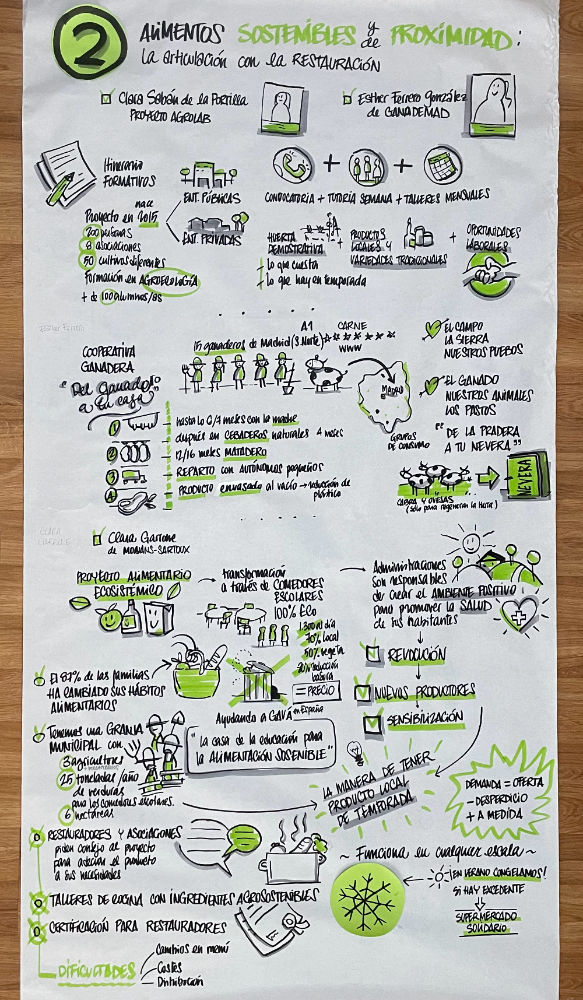 2
ALIMENTOS SOSTENIBLES y de PROXIMIDAD:
La articulación con la RESTAURACIÓN
Clara Sabán de la Portilla
PROYECTO AGROLAB
Esther Ferrero González
de GANADEMAD
Itinerario
FORMATIVOS
nace
Proyecto en 2015
200 personas
8 asociaciones
50 cultivos diferentes
Formación en AGROECOLOGÍA
+ de 100 alumnos/as
ENT. PÚBLICAS
ENT. PRIVADAS
CONVOCATORIA + TUTORÍA SEMANA + TALLERES MENSUALES
HUERTA
DEMOSTRATIVA
- Lo que cuesta
- Lo que hay en temporada
+
PRODUCTOS
LOCALES Y
VARIEDADES TRADICIONALES
+
OPORTUNIDADES
LABORALES
COOPERATIVA
GANADERA
"Del Ganadero
a tu casa"
15 ganaderos de Madrid (S. Norte)
A1 CARNE
WWW
MADRID
GRUPOS
DE CONSUMO
1 hasta los 6/7 meses con la madre
después en CEBADEROS naturales 4 meses
2 12/16 meses MATADERO
3 REPARTO con AUTÓNOMOS pequeños
4 PRODUCTO envasado al vacío → reducción de
plástico
EL CAMPO
LA SIERRA
NUESTROS PUEBLOS
EL GANADO
NUESTROS ANIMALES
LOS PASTOS
"DE LA PRADERA
A TU NEVERA"
CABRA Y OVEJAS
(Sólo para regenerar la tierra)
NEVERA
Clara Garrone
de MOUANS-SARTOUX
PROYECTO ALIMENTARIO
ECOSISTÉMICO
transformación
a través de COMEDORES
ESCOLARES
100% ECO
1300 al día
70% local
50% vegeta
basura
= PRECIO
Administraciones
son responsables
de crear el AMBIENTE POSITIVO
para promover la SALUD
de sus habitantes
REVOLUCIÓN
NUEVOS PRODUCTORES
SENSIBILIZACIÓN
El 87% de las familias
HA CAMBIADO SUS HÁBITOS
ALIMENTARIOS
Ayudando a GAVÀ en España
Tenemos una GRANJA
MUNICIPAL con
3 agricultores
25 toneladas/año
de verduras
para los comedores escolares
6 hectáreas
"La casa de la educación para
la ALIMENTACIÓN SOSENIBLE"
LA MANERA DE TENER
PRODUCTO LOCAL
DE TEMPORADA
DEMANDA = OFERTA
- DESPERDICIO
+ A MEDIDA
RESTAURADORES Y ASOCIACIONES
piden consejo al proyecto
para adecuar el producto
a sus necesidades
~ Funciona en cualquier escala ~
¡EN VERANO CONGELAMOS!
SI HAY EXCEDENTE
SUPERMERCADO
SOLIDARIO
TALLERES DE COCINA CON INGREDIENTES AGROSOSTENIBLES
CERTIFICACIÓN PARA RESTAURADORES
DIFICULTADES
Cambios en menú
Costes
Distribución